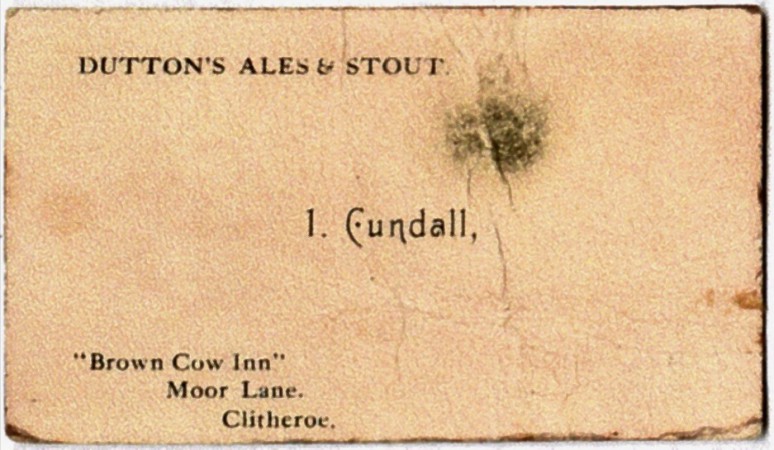 DUTTON'S ALES & STOUT.
I. Cundall,
"Brown Cow Inn"
Moor Lane.
Clitheroe.